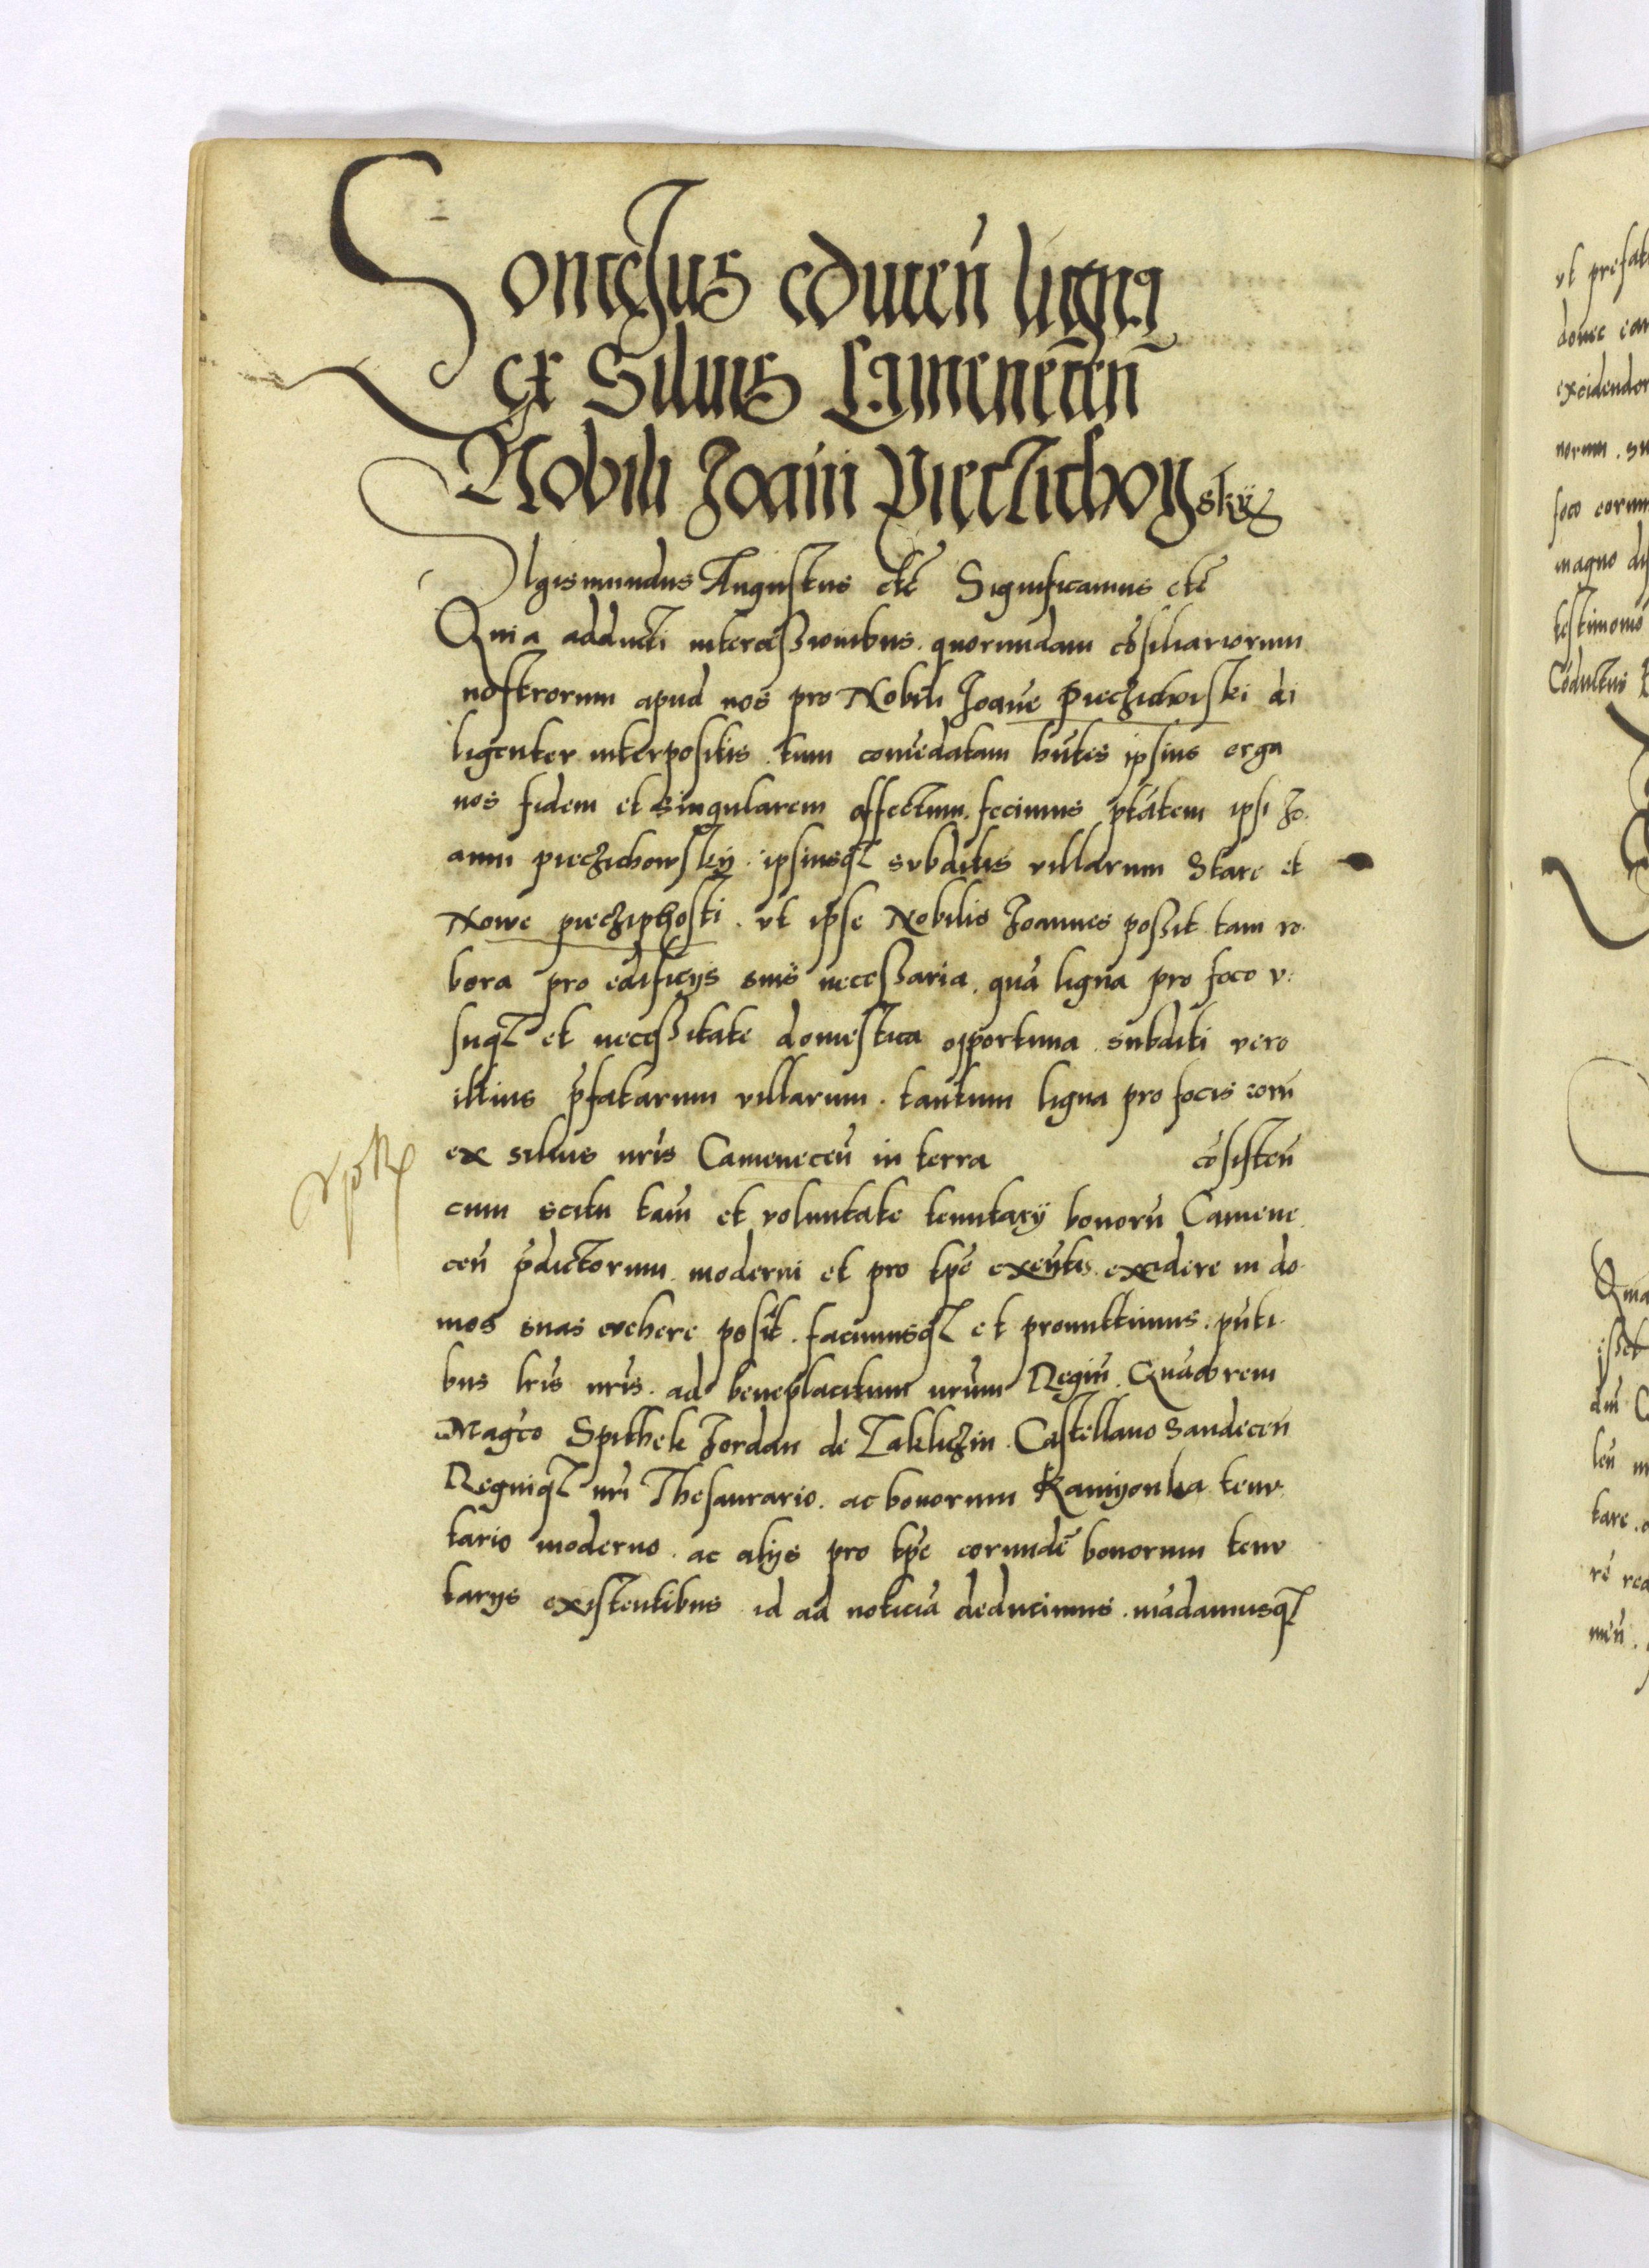 Consensus educen̄ ligna
ex Siluis Camenecen̄
Nobili Joan̄i Pieczichowsky
SIgismundus Augustus etc̄ Significamus etc̄
Quia adducti intercessionibus. quorundam cōsiliariorum
nostrorum apud nos pro Nobili Joan̄e Pieczichowski di
ligenter interpositis. tum com̄edatam hn̄tes ipsius erga
nos fidem et singularem affectum. fecimus ptātem ipsi Jo.
anni pieczichowsky. ipsiusq̄ subditis villarum Stare et
Nowe pieczichosti. vt ipse Nobilis Joannes possit tam ro.
bora pro edificijs suis necessaria. quā ligna pro foco v.
suq̄ et necessitate domestica opportuna. subditi vero
illius p̄fatarum villarum. tantum ligna pro focis eorū
ex siluis nr̄is Camenecen̄ in terra cōsisten̄
cum scitu tam̄ et voluntate tenutarÿ bonorū Camene
cen̄ p̄dictorum. moderni et pro tpe exn̄tis. excidere in do
mos suas evehere possit. facimusq̄ et promittimus. pn̄ti
bus lr̄is nr̄is. ad beneplacitum nr̄um Regiū. Quāobrem
Magco Spithek Jordan de Zakliczin. Castellano Sandecen̄
Regniq̄ nr̄i Thesaurario. ac bonorum Kamÿonka tenu
tario moderno. ac alijs pro tpe eorundē bonorum tenu
tarijs existentibus id ad noticiā deducimus. mādamusq̄
vt prefat
donec ear
excidendor
norum. su
foco eorum
magno di
testimoniō
Cōductus
Quia
isset
dn̄i C
len̄ m
tare.
rē rea
men̄.